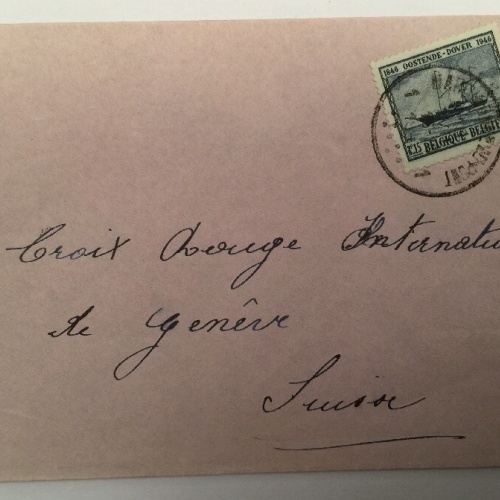 1846 OOSTENDE-DOVER 1946
1.35 BELGIQUE-BELGIË
Croix Rouge Internatu
de Genêve
Suisse